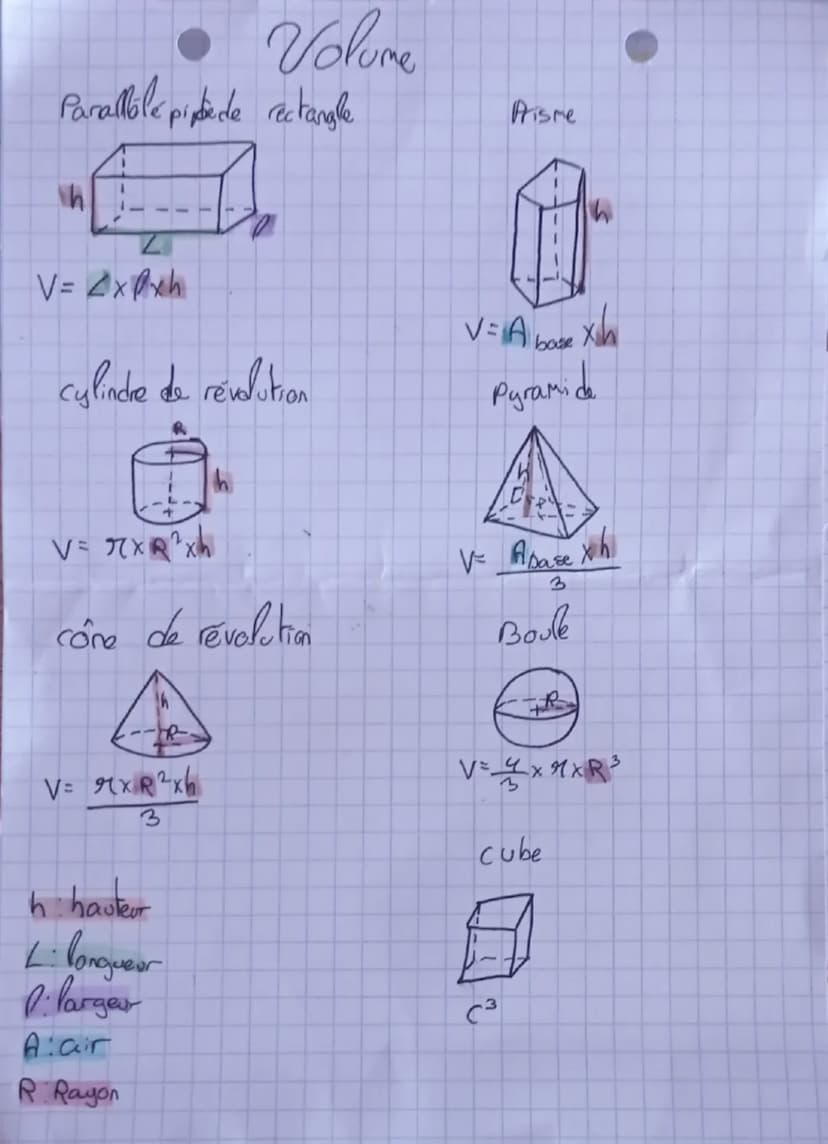 Volume
Parallélépipède rectangle
h
L
l
V = L x l x h
Prisme
h
V = A base x h
cylindre de révolution
R
h
V = π x R² x h
Pyramide
h
V = A base x h
3
cône de révolution
h
R
V = π x R² x h
3
Boule
R
V = 4/3 x π x R³
cube
c³
h : hauteur
L : longueur
l : largeur
A : air
R : Rayon